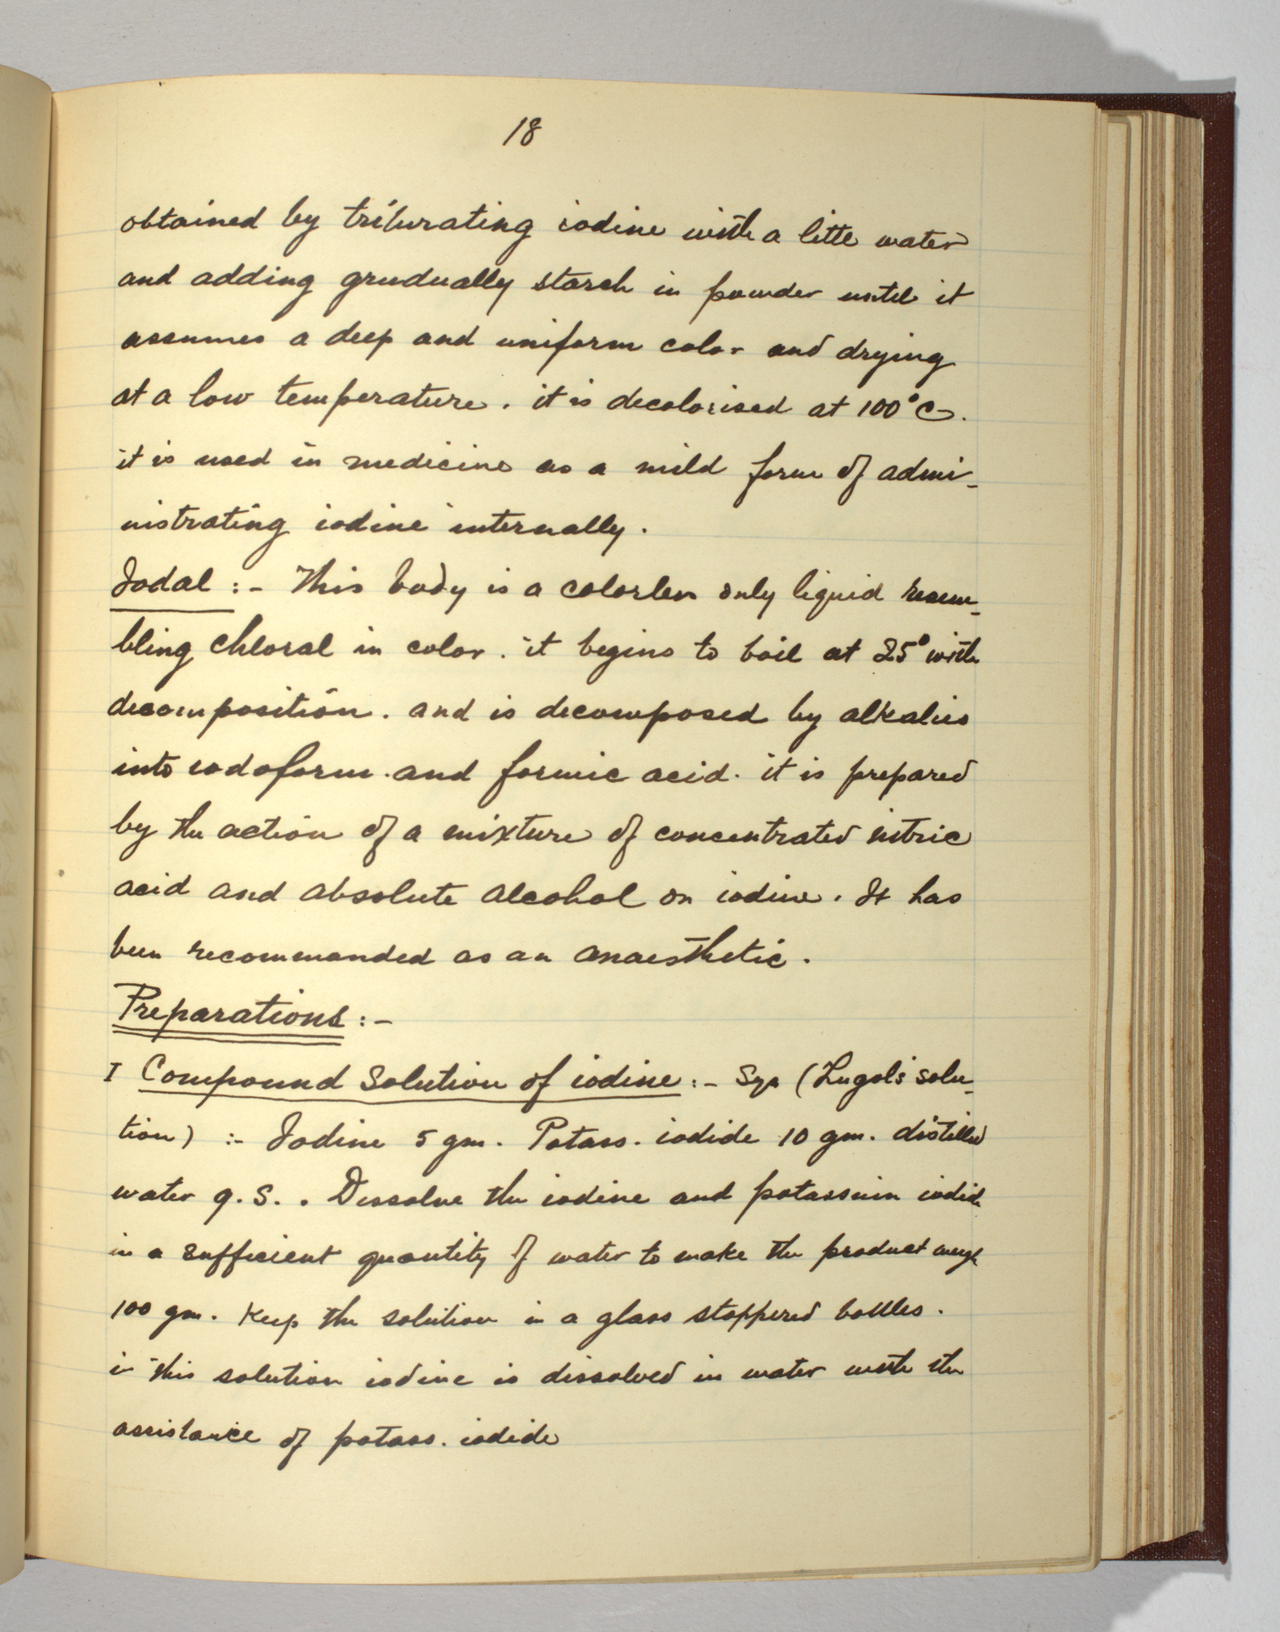 18
obtained by triturating iodine with a litte water
and adding gradually starch in powder until it
assumes a deep and uniform color and drying
at a low temperature. it is decolorised at 100°C.
it is used in medicine as a mild form of admi-
nistrating iodine internally.
Iodal :- This body is a colorless only liquid resem-
bling chloral in color. it begins to boil at 25° with
decomposition. and is decomposed by alkalies
into iodoform. and formic acid. it is prepared
by the action of a mixture of concentrated nitric
acid and absolute alcohol on iodine. It has
been recommanded as an anaesthetic.
Preparations :-
I Compound Solution of iodine :- Syn (Lugol's solu-
tion) :- Iodine 5 gm. Potass. iodide 10 gm. distilled
water q.S.. Dissolve the iodine and potassium iodid
in a sufficient quantity of water to make the product weigh
100 gm. Keep the solution in a glass stoppered bottles.
in this solution iodine is dissolved in water with the
assistance of potass. iodide